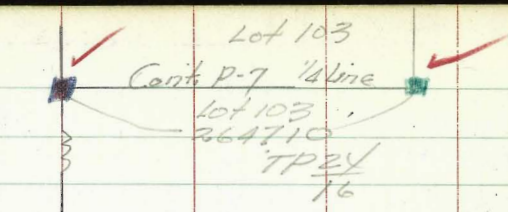 Lot 103
Cont. P-7 1/4 Line
Lot 103
264710
TP 24
16